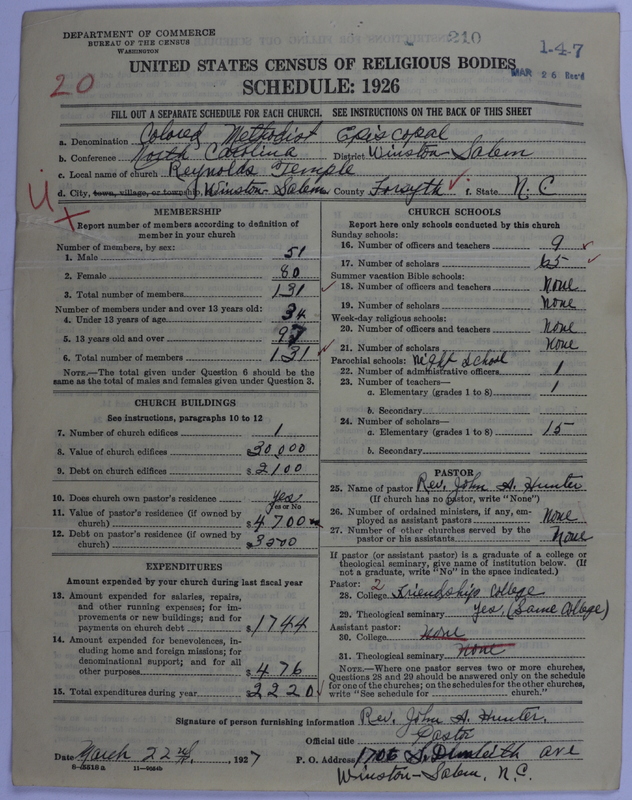 DEPARTMENT OF COMMERCE
BUREAU OF THE CENSUS
WASHINGTON
210
1-4-7
MAR 26 Rec'd
20
UNITED STATES CENSUS OF RELIGIOUS BODIES
SCHEDULE: 1926
FILL OUT A SEPARATE SCHEDULE FOR EACH CHURCH. SEE INSTRUCTIONS ON THE BACK OF THIS SHEET
a. Denomination Colored Methodist Episcopal
b. Conference North Carolina District Winston-Salem
c. Local name of church Reynolds Temple
d. City, town, village, or township, Winston-Salem County Forsyth f. State N.C
MEMBERSHIP
Report number of members according to definition of member in your church
Number of members, by sex:
1. Male 51
2. Female 80
3. Total number of members 131
Number of members under and over 13 years old:
4. Under 13 years of age 34
5. 13 years old and over 97
6. Total number of members 131
NOTE.—The total given under Question 6 should be the same as the total of males and females given under Question 3.
CHURCH BUILDINGS
See instructions, paragraphs 10 to 12
7. Number of church edifices 1
8. Value of church edifices $30,000
9. Debt on church edifices $2100
10. Does church own pastor's residence yes
Yes or No
11. Value of pastor's residence (if owned by church) $4700
12. Debt on pastor's residence (if owned by church) $3200
EXPENDITURES
Amount expended by your church during last fiscal year
13. Amount expended for salaries, repairs, and other running expenses; for improvements or new buildings; and for payments on church debt $1744
14. Amount expended for benevolences, including home and foreign missions; for denominational support; and for all other purposes $476
15. Total expenditures during year $2220
CHURCH SCHOOLS
Report here only schools conducted by this church
Sunday schools:
16. Number of officers and teachers 9
17. Number of scholars 65
Summer vacation Bible schools:
18. Number of officers and teachers None
19. Number of scholars None
Week-day religious schools:
20. Number of officers and teachers None
21. Number of scholars None
Parochial schools: Night School
22. Number of administrative officers 1
23. Number of teachers—
a. Elementary (grades 1 to 8) 1
b. Secondary
24. Number of scholars—
a. Elementary (grades 1 to 8) 15
b. Secondary
PASTOR
25. Name of pastor Rev. John A. Hunter
(If church has no pastor, write "None")
26. Number of ordained ministers, if any, employed as assistant pastors None
27. Number of other churches served by the pastor or his assistants None
If pastor (or assistant pastor) is a graduate of a college or theological seminary, give name of institution below. (If not a graduate, write "No" in the space indicated.)
Pastor: 2
28. College Friendship College
29. Theological seminary yes. (Same College)
Assistant pastor:
30. College None
31. Theological seminary None
NOTE.—Where one pastor serves two or more churches, Questions 28 and 29 should be answered only on the schedule for one of the churches; on the schedules for the other churches, write "See schedule for church."
Signature of person furnishing information Rev. John A. Hunter.
Official title Pastor
Date March 22nd, 1927 P. O. Address 1706 ave
Winston-Salem, N.C.